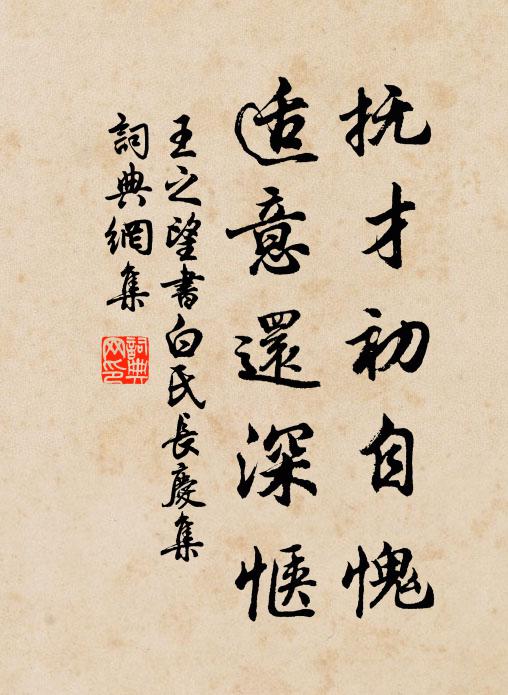 抚才初自愧
适意還深惬
王之望書白氏長慶集
詞典網集
詞典網印